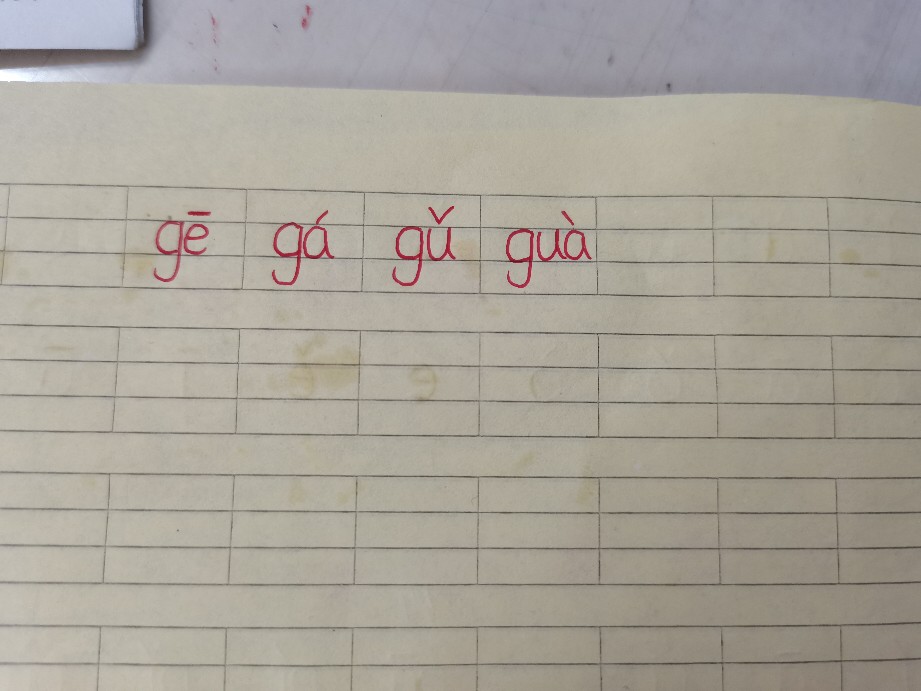 gē gá gǔ guà